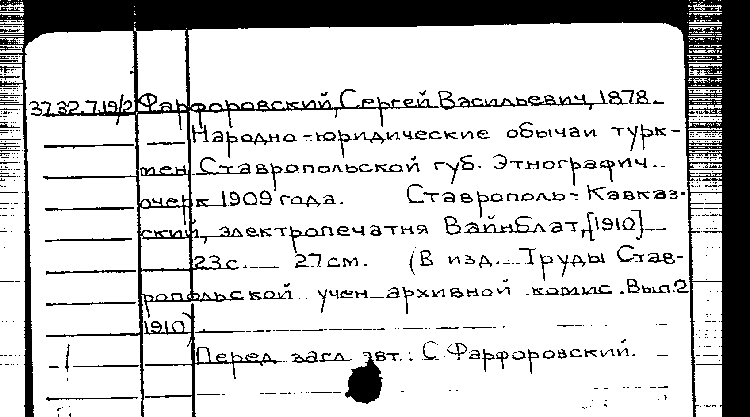 37.32.7.19/2 Фарфоровский, Сергей Васильевич, 1878-
Народно-юридические обычаи турк-
мен Ставропольской губ. Этнографич.
очерк 1909 года. Ставрополь-Кавказ-
ский, электропечатня Вайнблат, [1910]
23 с. 27 см. (В изд. Труды Став-
ропольской учен архивной комис. Вып. 2
1910)
Перед загл. авт.: С. Фарфоровский.